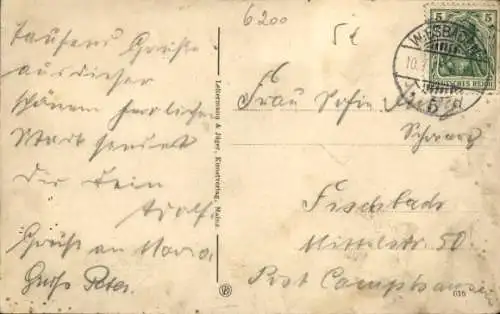 6200
5€
Tausend Grüße
aus dieser
schönen herrlichen
Stadt sendet
Dir Dein
Adolf.
Gruß an Maria
Gruß Peter.
Letterstumg & Jäger, Kunstverlag, Mainz
5 5
DEUTSCHES REICH
WIESBADEN
10.
Frau Sofie
Schwarz
Fischbach
Mittelstr 50.
Post Camphausen
015